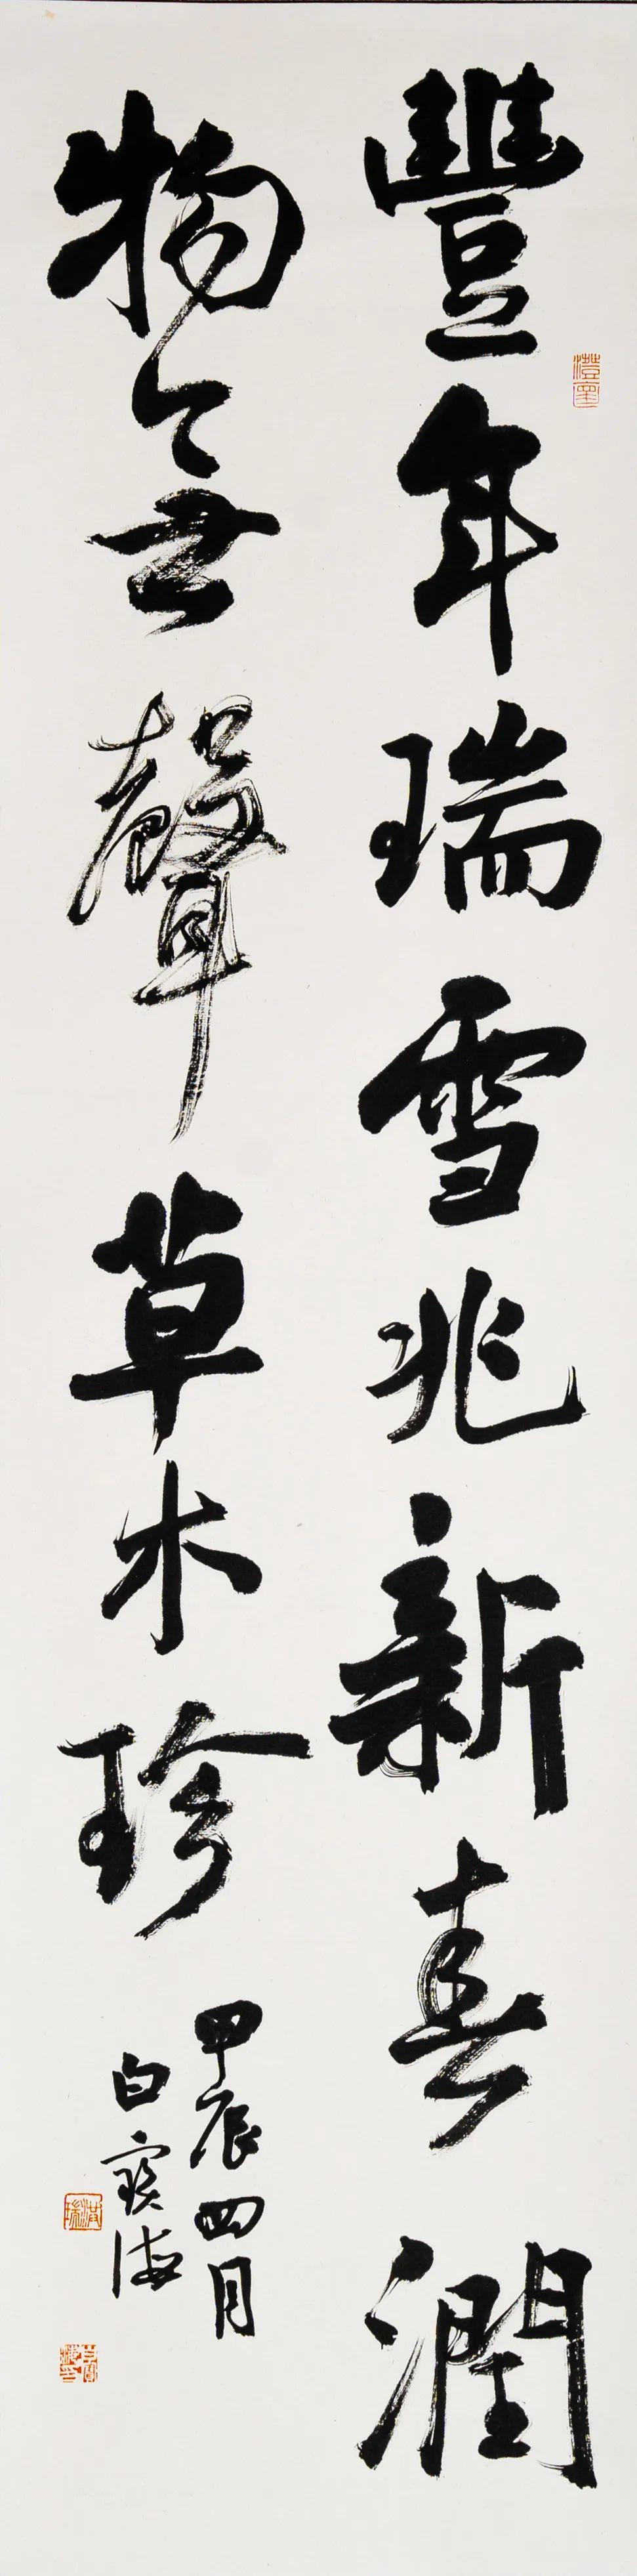 豐年瑞雪兆新春潤
物無聲草木珍
甲辰四月
白寶海